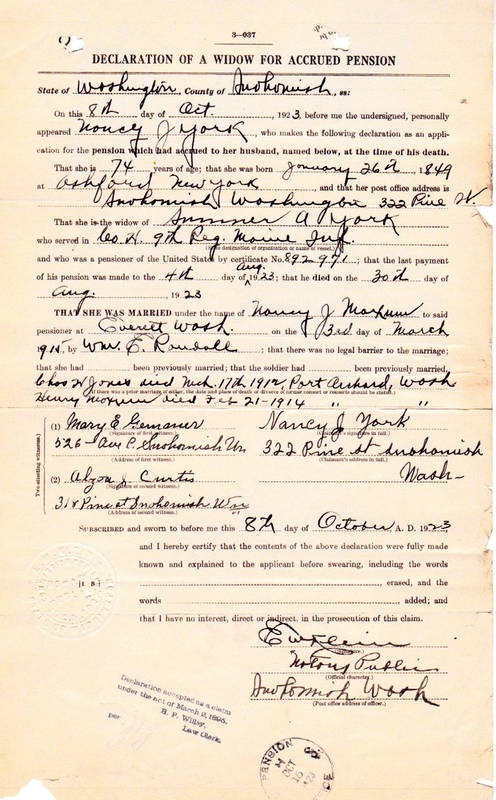 3—037
DECLARATION OF A WIDOW FOR ACCRUED PENSION
State of Washington, County of Snohomish, ss:
On this 8th day of Oct., 1923 before me the undersigned, personally
appeared Nancy J York, who makes the following declaration as an appli-
cation for the pension which had accrued to her husband, named below, at the time of his death.
That she is 74 years of age; that she was born January 26th, 1849
at Ashford New York, and that her post office address is
Snohomish Washington 322 Pine St.
That she is the widow of Sumner A York
who served in Co. H. 9th Reg. Maine Inf.
(Here state designation of organization or name of vessel.)
and who was a pensioner of the United States by certificate No. 892971; that the last payment
of his pension was made to the 4th day of Aug. 1923; that he died on the 30th day of
Aug., 1923
THAT SHE WAS MARRIED under the name of Nancy J. Moxum to said
pensioner at Everett Wash. on the 3rd day of March
1915, by Wm. E. Randall; that there was no legal barrier to the marriage;
that she had been previously married; that the soldier had been previously married,
Chas H Jones died Mch. 17th 1912, Port Orchard, Wash
(If there was a prior marriage of either, the date and place of death or divorce of former consort or consorts should be stated.)
Henry Moxum died Feb 21-1914 " "
(1) Mary E.
(Signature of first witness.)
Nancy J. York
(Claimant's signature in full.)
526- Ave C. Snohomish Wn
(Address of first witness.)
322 Pine St Snohomish
Wash-
(2) J. Curtis
(Signature of second witness.)
318 Pine st Snohomish Wn
(Address of second witness.)
Two attesting witnesses.
SUBSCRIBED and sworn to before me this 8th day of October, A. D. 1923
and I hereby certify that the contents of the above declaration were fully made
known and explained to the applicant before swearing, including the words
erased, and the
words added; and
that I have no interest, direct or indirect, in the prosecution of this claim.
[L. S.]
(Signature.)
Notary Public
(Official character.)
Snohomish Wash
(Post office address of officer.)
Declaration accepted as a claim
under the act of March 2, 1895.
B. F. Willey,
Law Clerk.
per
PENSION OFFICE
OCT